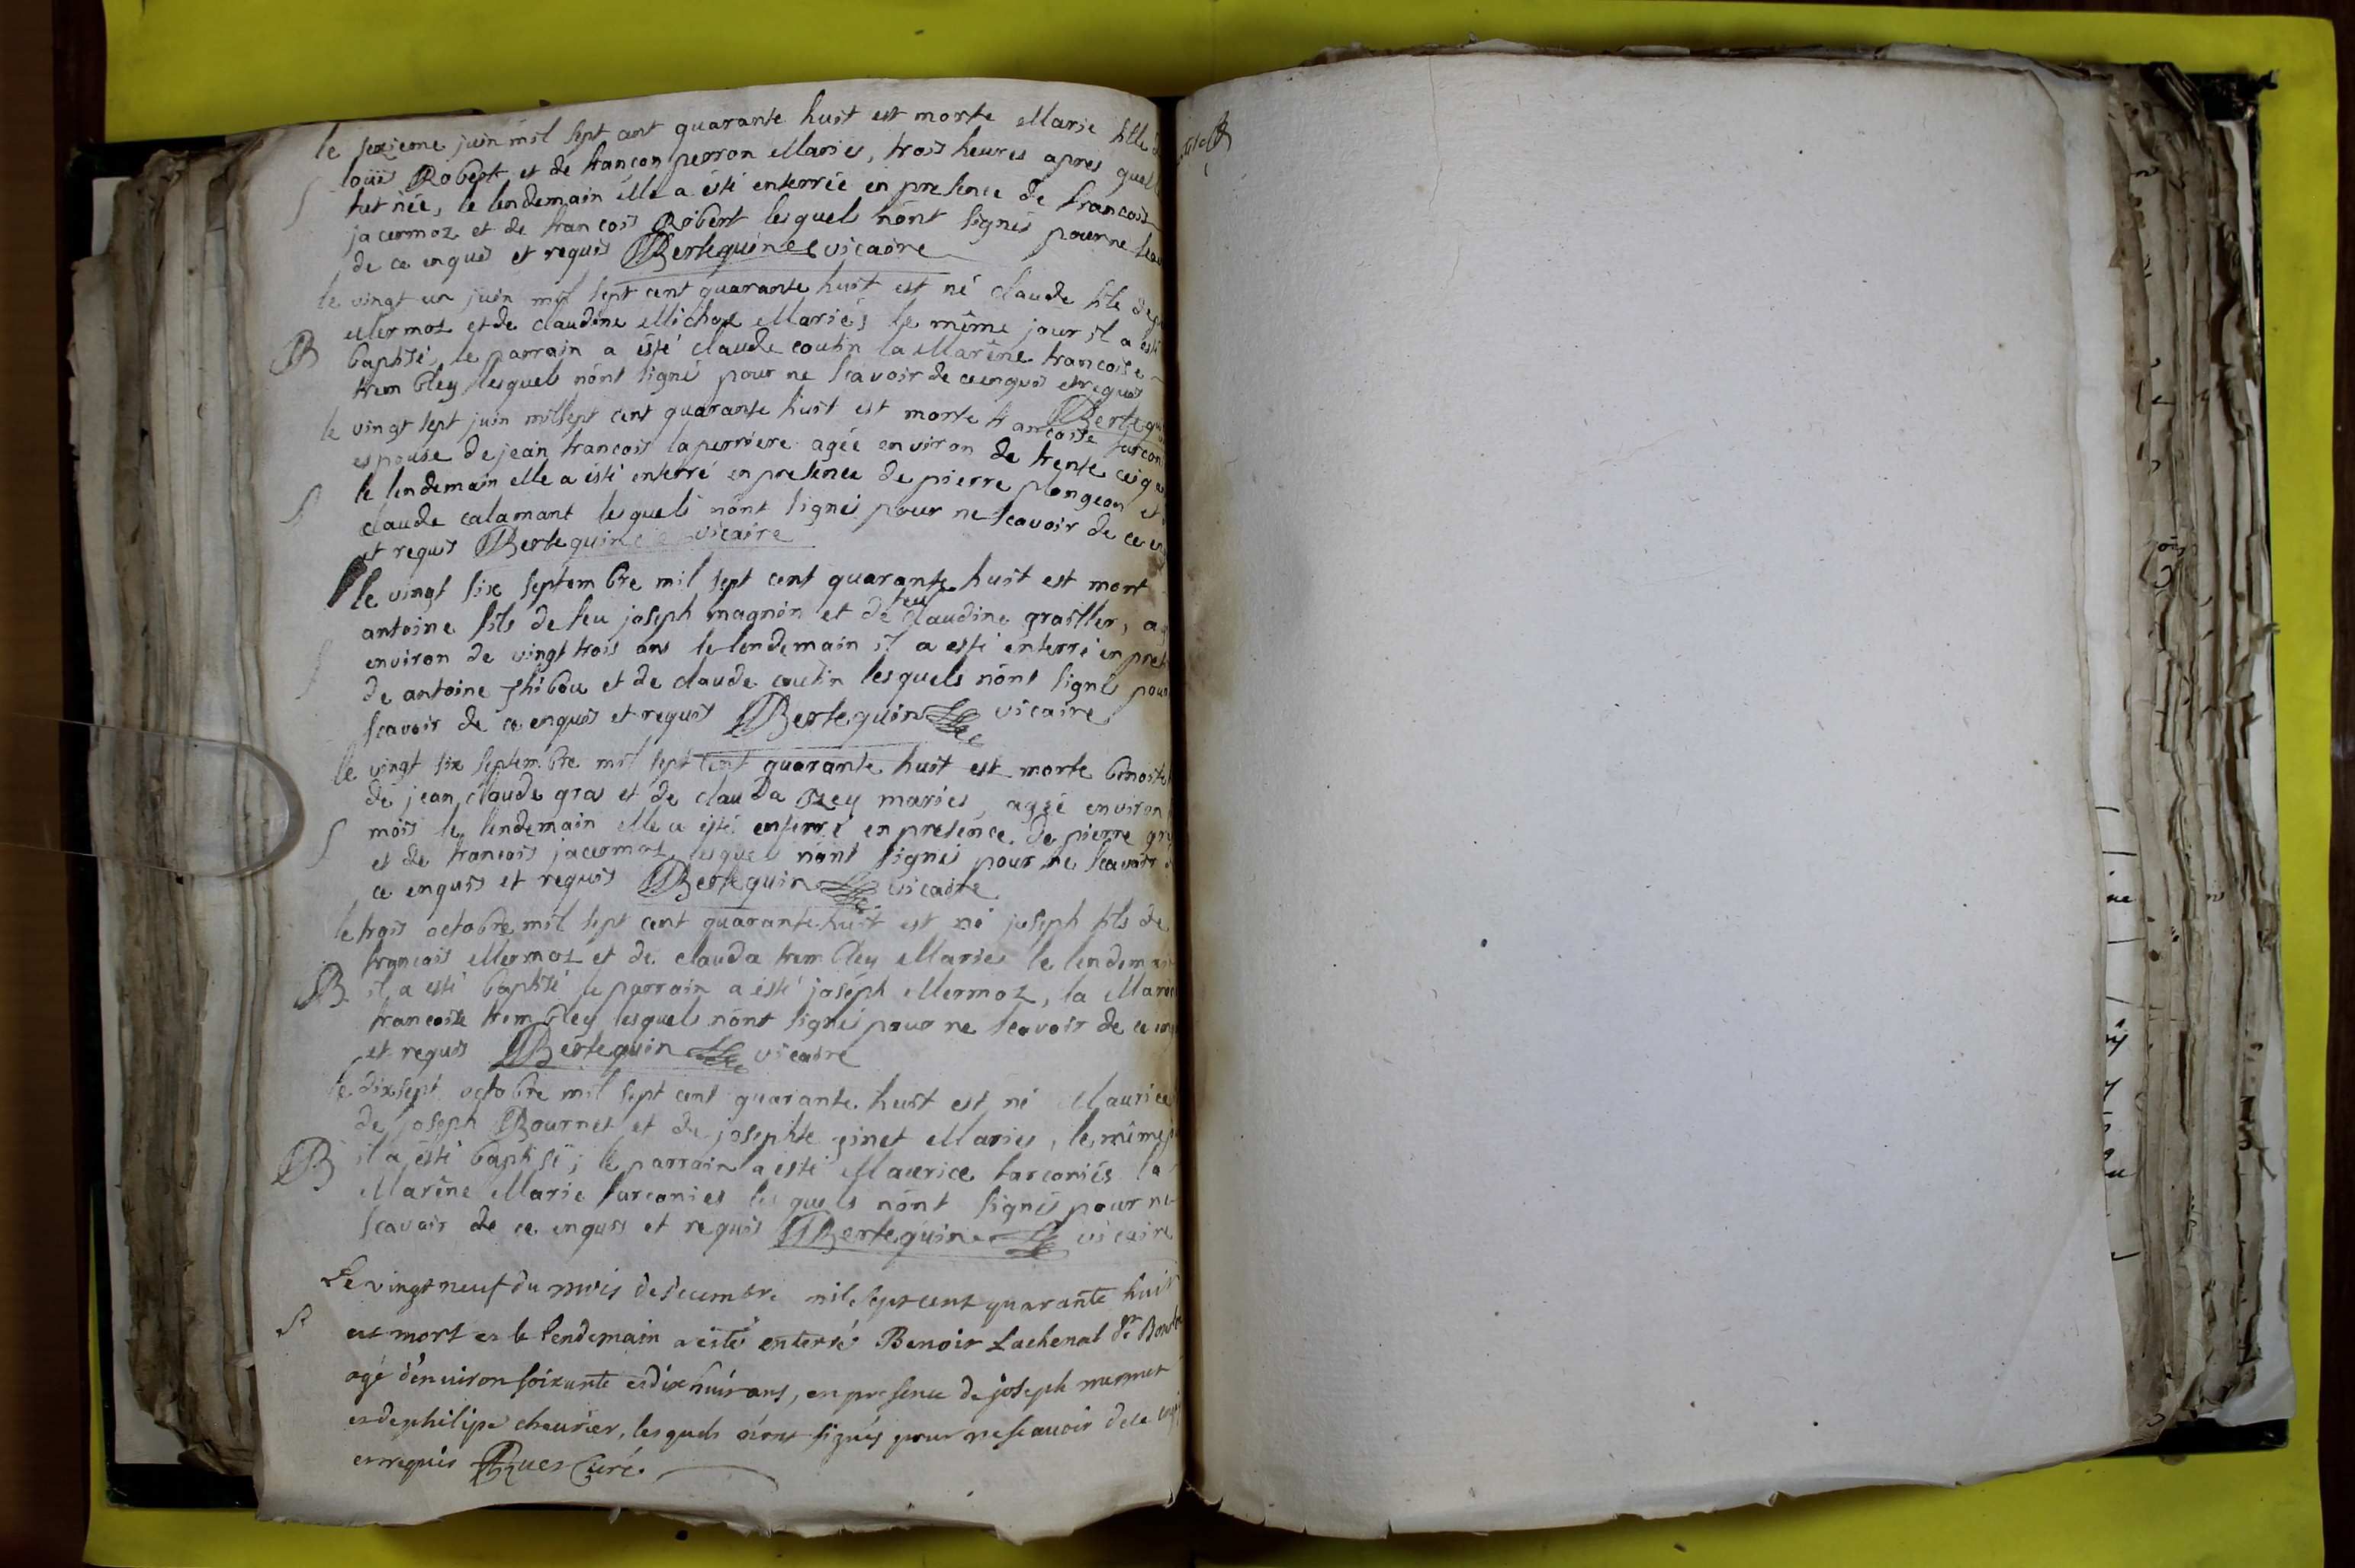 le sezieme juin mil sept cent quarante huit est morte Marie fille
loüis Robert et de françon perron Mariés, trois heures apres quel
fut née, le lendemain elle a ésté enterrée en presence de francois
S
jacermoz et de francois Robert lesquels nónt signés pour ne scav
de ce enquis et requis Bertequin vicaire
le vingt un juin mil sept cent quarante huit est né claude fils de
Mermoz et de claudine Michoz Mariés le même jour il a ésté
B baptisé, le parrain a ésté claude coutin la Marêne francoise
trembley lesquels nónt signés pour ne scavoir de ce enquis et requis
Bertequ
le vingt sept juin mil sept cent quarante huit est morte francoise farcon
espouse de jean francois laperriere agée environ de trente
S le lendemain elle a ésté enterré en presence de pierre plongeon et
claude calamant lesquels nónt signés pour ne scavoir de ce en
et requis Bertequin vicaire
le vingt six septembre mil sept cent quarante huit est mort
antoine fils de feu joseph magnin et de feu claudine graisller, ag
environ de vingt trois ans le lendemain il a esté enterré en pres
S
de antoine thibou et de claude coutin lesquels nónt signés pour
scavoir de ce enquis et requis Bertequin vicaire
le vingt six septembre mil sept cent quarante huit est morte benoite
de jean claude gras et de clauda Rey mariés, aggé environ
S mois le lendemain elle a ésté enterré en presence de pierre gr
et de francois jacermoz lesquels nónt signés pour ne scavoir
ce enquis et requis Bertequin vicaire
le trois octobre mil sept cent quarante huit est né joseph fils de
francois Mermoz et de clauda trembley Mariés le lendemain
B il a esté baptisé le parrain a ésté joseph Mermoz, la Marên
francoise trembley lesquels nónt signés pour ne scavoir de ce en
et requis Bertequin vicaire
le dixsept octobre mil sept cent quarante huit est né Maurice
de joseph Bournet et de josephte ginet Mariés, le même
B il a ésté baptisé; le parrain a ésté Maurice farconiés la
Marêne Marie farconies lesquels nónt signés pour ne
scavoir de ce enquis et requis Bertequin vicaire
Le vingt neuf du mois de decembre mil sept cent quarante huit
S est mort et le lendemain a été enterré Benoit Lachenal de
agé d'environ soixante et dix huit ans, en presence de joseph mermet
et de philipe cheurier, lesquels n'ont signés pour ne scauoir de ce
et requis Ruet Curé.